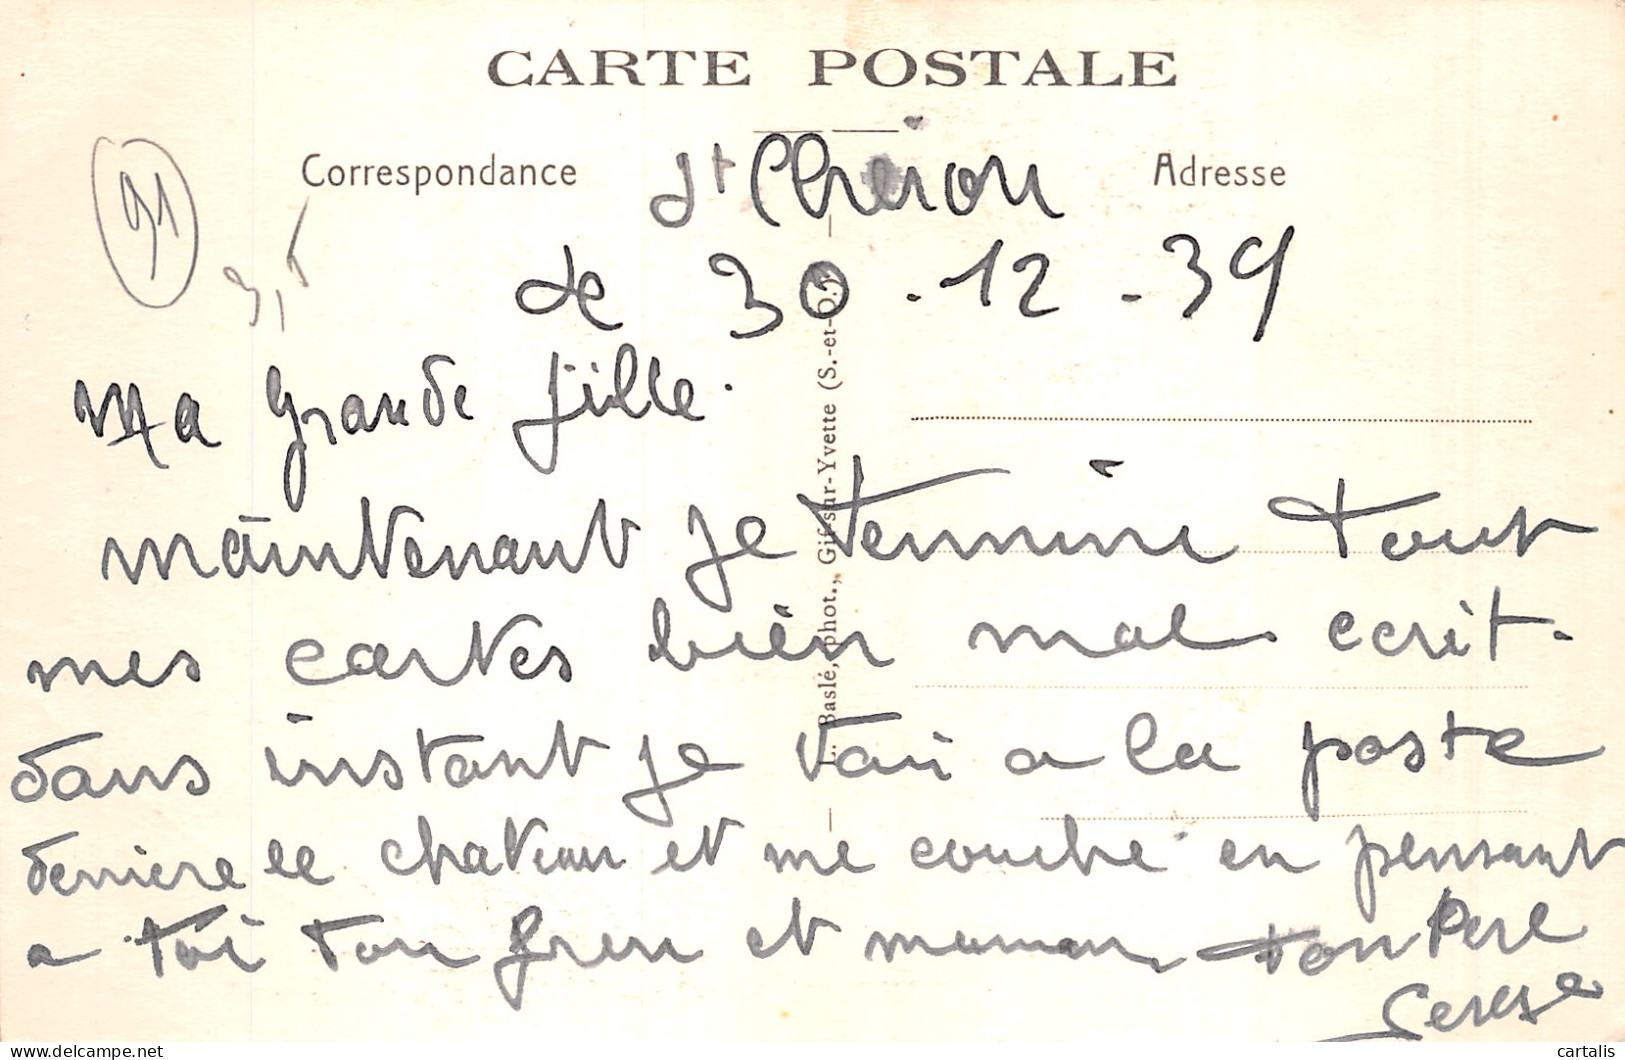 CARTE POSTALE
Correspondance
Adresse
91
3,5
St Cheron
de 30.12.39
Ma grande fille.
maintenant je termine tout
mes cartes bien mal ecrit.
dans instant je vai a la poste
derriere le chateau et me couche en pensant
a toi ton frere et maman ton Pere
L. Baslé, phot., Gif-sur-Yvette (S.-et-O.)
delcampe.net
cartalis